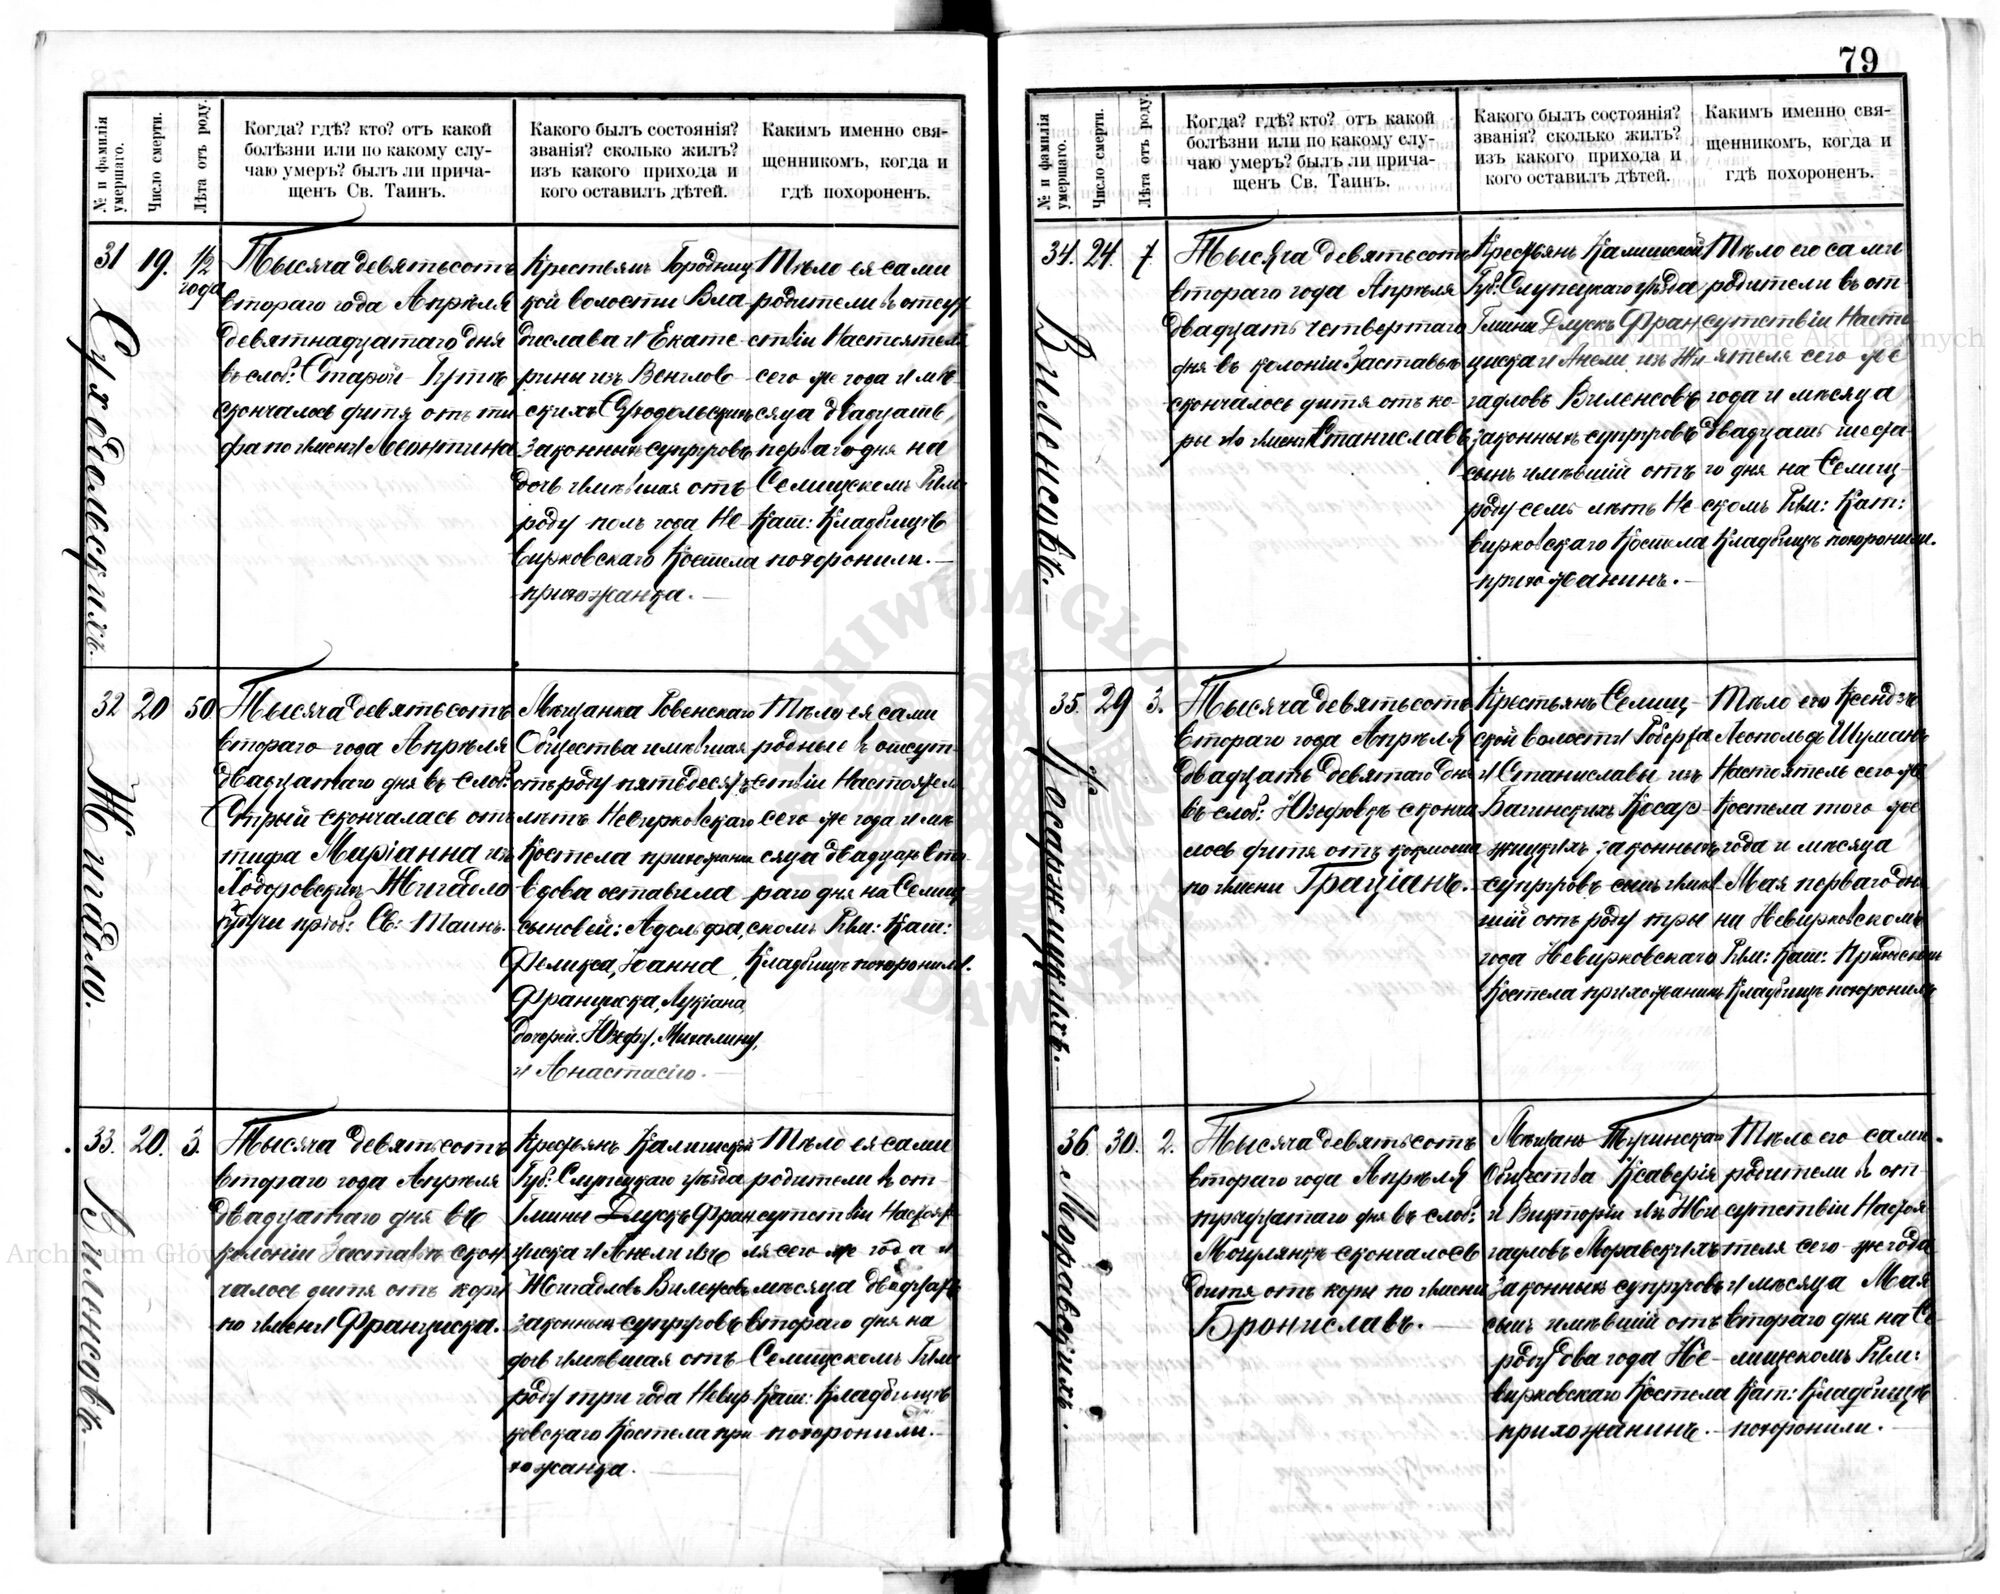 79
№ и фамилія умершаго.
Число смерти.
Лѣта отъ роду.
Когда? гдѣ? кто? отъ какой
болѣзни или по какому слу-
чаю умеръ? былъ ли прича-
щенъ Св. Таинъ.
Какого былъ состоянія?
званія? сколько жилъ?
изъ какого прихода и
кого оставилъ дѣтей.
Какимъ именно свя-
щенникомъ, когда и
гдѣ похороненъ.
31
Суходольскихъ.
19.
1/2
года
Тысяча девятьсотъ
втораго года Апрѣля
девятнадцатаго дня
въ слоб: Старой Гутѣ
скончалось дитя отъ ти
фа по имени Леонтина
Крестьянъ Городниц
кой волости Вла
дислава и Екате-
рины изъ Венглов
скихъ Суходольскихъ
законныхъ супруговъ
дочь имѣвшая отъ
роду полъ года Не-
вирковскаго Костела
прихожанка.
Тѣло ея сами
родители въ отсут
ствіи Настоятеля
сего же года и мѣ
сяца двадцать
перваго дня на
Селищскомъ Рим:
Кат: Кладбищѣ
похоронили.
32
Жигадло.
20
50
Тысяча девятьсотъ
втораго года Апрѣля
двадцатаго дня въ слоб:
скончалась отъ
тифа Маріанна изъ
Ходоровскихъ Жигадло
будучи пріоб: Св: Таинъ.
Мѣщанка Ровенскаго
Общества имѣвшая
отъ роду пятьдесятъ
лѣтъ Невирковскаго
Костела прихожанка
вдова оставила
сыновей: Адольфа,
Феликса, Іоанна,
Франциска, Лукіана,
дочерей: Юзефу, Михалину,
и Анастасію.
Тѣло ея сами
родные въ отсут-
ствіи Настоятеля
сего же года и мѣ
сяца двадцать вто
раго дня на Селищ
скомъ Рим: Кат:
Кладбищѣ похоронили.
33.
Виленсовъ.
20.
3.
Тысяча девятьсотъ
втораго года Апрѣля
двадцатаго дня въ
колоніи Заставье скон
чалось дитя отъ кори
по имени Франциска.
Крестьянъ Калишской
Губ: Слупецкаго уѣзда
Гмины Длускъ Фран
циска и Анели изъ
Жигадловъ Виленсовъ
законныхъ супруговъ
дочь имѣвшая отъ
роду три года Невир
ковскаго Костела при
хожанка.
Тѣло ея сами
родители въ от-
сутствіи Настояте
ля сего же года и
мѣсяца двадцать
втораго дня на
Селищскомъ Рим:
Кат: Кладбищѣ
похоронили.
№ и фамилія умершаго.
Число смерти.
Лѣта отъ роду.
Когда? гдѣ? кто? отъ какой
болѣзни или по какому слу-
чаю умеръ? былъ ли прича-
щенъ Св. Таинъ.
Какого былъ состоянія?
званія? сколько жилъ?
изъ какого прихода и
кого оставилъ дѣтей.
Какимъ именно свя-
щенникомъ, когда и
гдѣ похороненъ.
34.
Виленсовъ.
24.
7
Тысяча девятьсотъ
втораго года Апрѣля
двадцать четвертаго
дня въ колоніи Заставье
скончалось дитя отъ ко-
ри по имени Станиславъ
Крестьянъ Калишской
Губ: Слупецкаго уѣзда
Гмины Длускъ Фран
циска и Анели изъ Жи
гадловъ Виленсовъ
законныхъ супруговъ
сынъ имѣвшій отъ
роду семь лѣтъ Не
вирковскаго Костела
прихожанинъ.
Тѣло его сами
родители въ от-
сутствіи Насто
ятеля сего же
года и мѣсяца
двадцать шеста-
го дня на Селищ-
скомъ Рим: Кат:
Кладбищѣ похоронили.
35.
Косаржицкихъ.
29
3.
Тысяча девятьсотъ
втораго года Апрѣля
двадцать девятаго дня
въ слоб: Юзефовкѣ сконча
лось дитя отъ коклюша
по имени Граціанъ.
Крестьянъ Селищ-
ской волости Роберта
и Станиславы изъ
Багинскихъ Косар-
жицкихъ законныхъ
супруговъ сынъ имѣв
шій отъ роду три
года Невирковскаго
Костела прихожанинъ
Тѣло его Ксендзъ
Леопольдъ Шуманъ
Настоятель сего же
Костела того же
года и мѣсяца
Мая перваго дня
на Невирковскомъ
Рим: Кат: Приходскомъ
Кладбищѣ похоронилъ
36
Моравскихъ.
30.
2.
Тысяча девятьсотъ
втораго года Апрѣля
тридцатаго дня въ слоб:
Могулянкѣ скончалось
дитя отъ кори по имени
Брониславъ.
Мѣщанъ Тучинскаго
Общества Ксаверія
и Викторіи изъ Жи
гадловъ Моравскихъ
законныхъ супруговъ
сынъ имѣвшій отъ
роду два года Не-
вирковскаго Костела
прихожанинъ.
Тѣло его сами
родители въ от-
сутствіи Настоя
теля сего же года
и мѣсяца Мая
втораго дня на Се
лищскомъ Рим:
Кат: Кладбищѣ
похоронили.
Archiwum Główne Akt Dawnych